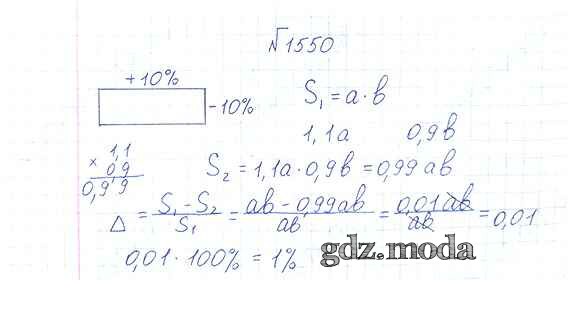 №1550
+10%
-10%
S₁ = a · b
1,1a 0,9b
1,1
× 0,9
0,99
S₂ = 1,1a · 0,9b = 0,99 ab
Δ = (S₁ - S₂)/S₁ = (ab - 0,99ab)/ab = (0,01 ab)/ab = 0,01
0,01 · 100% = 1%
gdz.moda